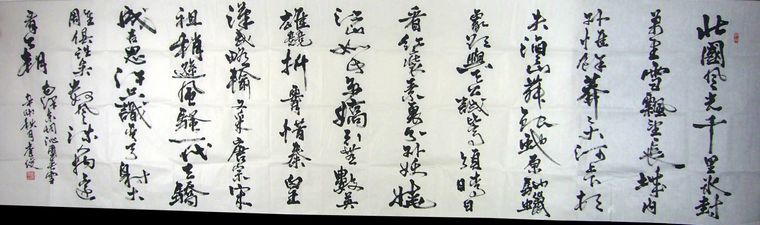 北國风光千里冰封
萬里雪飄望長城内
外惟餘莽莽大河上下頓
失滔滔山舞銀蛇原馳蠟
象欲與天公試比高須晴日
看紅裝素裹分外妖嬈
江山如此多嬌引無數英
雄競折腰惜秦皇
漢武略輸文采唐宗宋
祖稍遜风騷一代天驕
成吉思汗只識彎弓射大
雕俱往矣數风流人物還
看今朝
毛澤東詞沁園春雪
秋月李